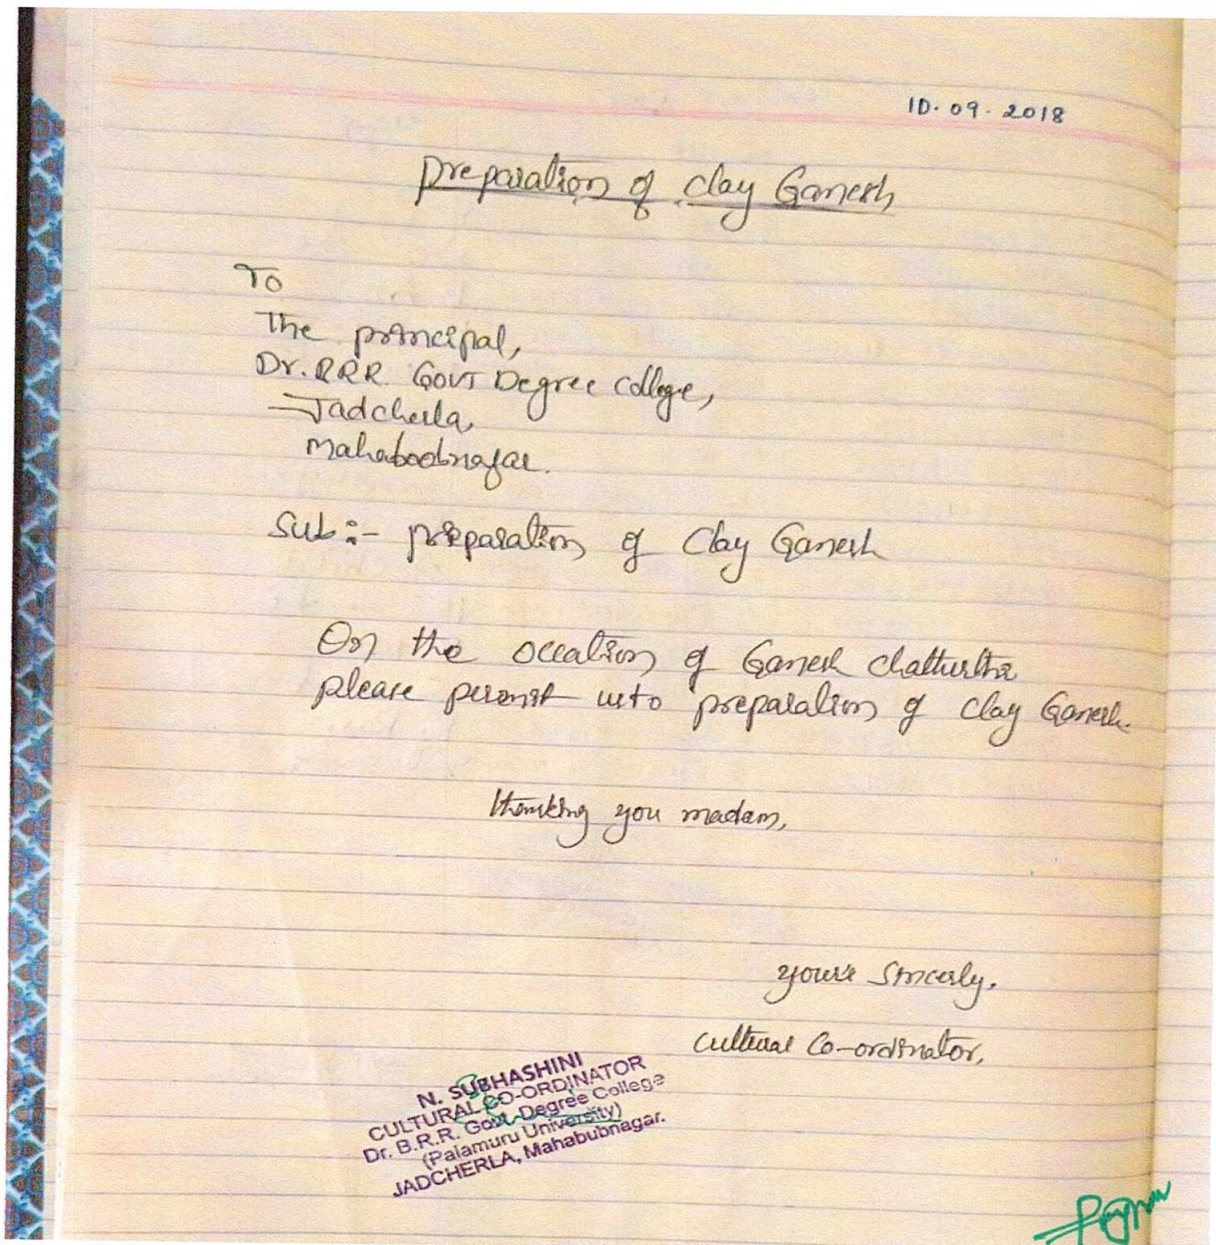 10.09.2018
Preparation of clay Ganesh
To
The principal,
Dr. BRR Govt Degree College,
Jadcherla,
Mahaboobnagar.
Sub:- preparation of Clay Ganesh
On the occation of Ganesh chatturthi
please permit us to preparation of clay Ganesh.
thanking you madam,
your's Sincerly.
Cultural Co-ordinator,
N. SUBHASHINI
CULTURAL CO-ORDINATOR
Dr. B.R.R. Govt. Degree College
(Palamuru University)
JADCHERLA, Mahabubnagar.